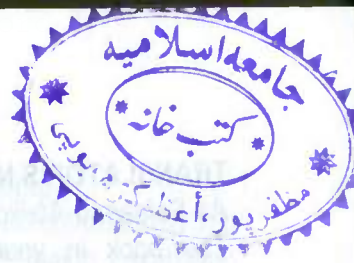 جامعه اسلامیه
کتب خانه
مظفرپور، أعظم گڑھ، یوپی